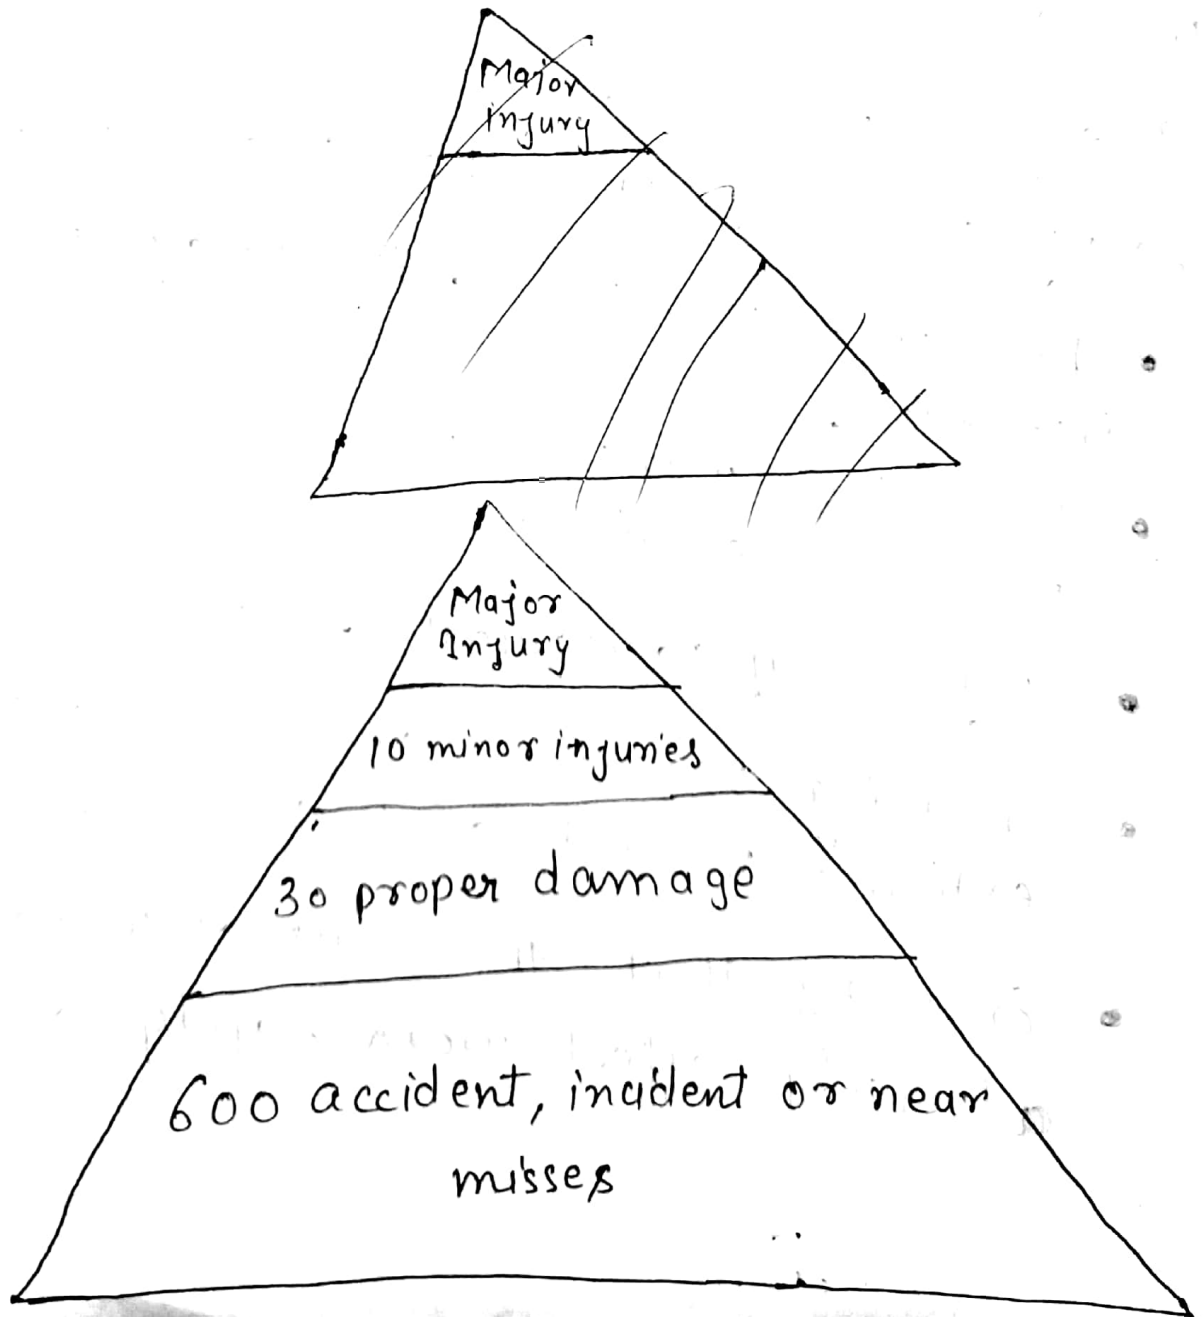 Major
injury
Major
Injury
10 minor injuries
30 proper damage
600 accident, incident or near
misses